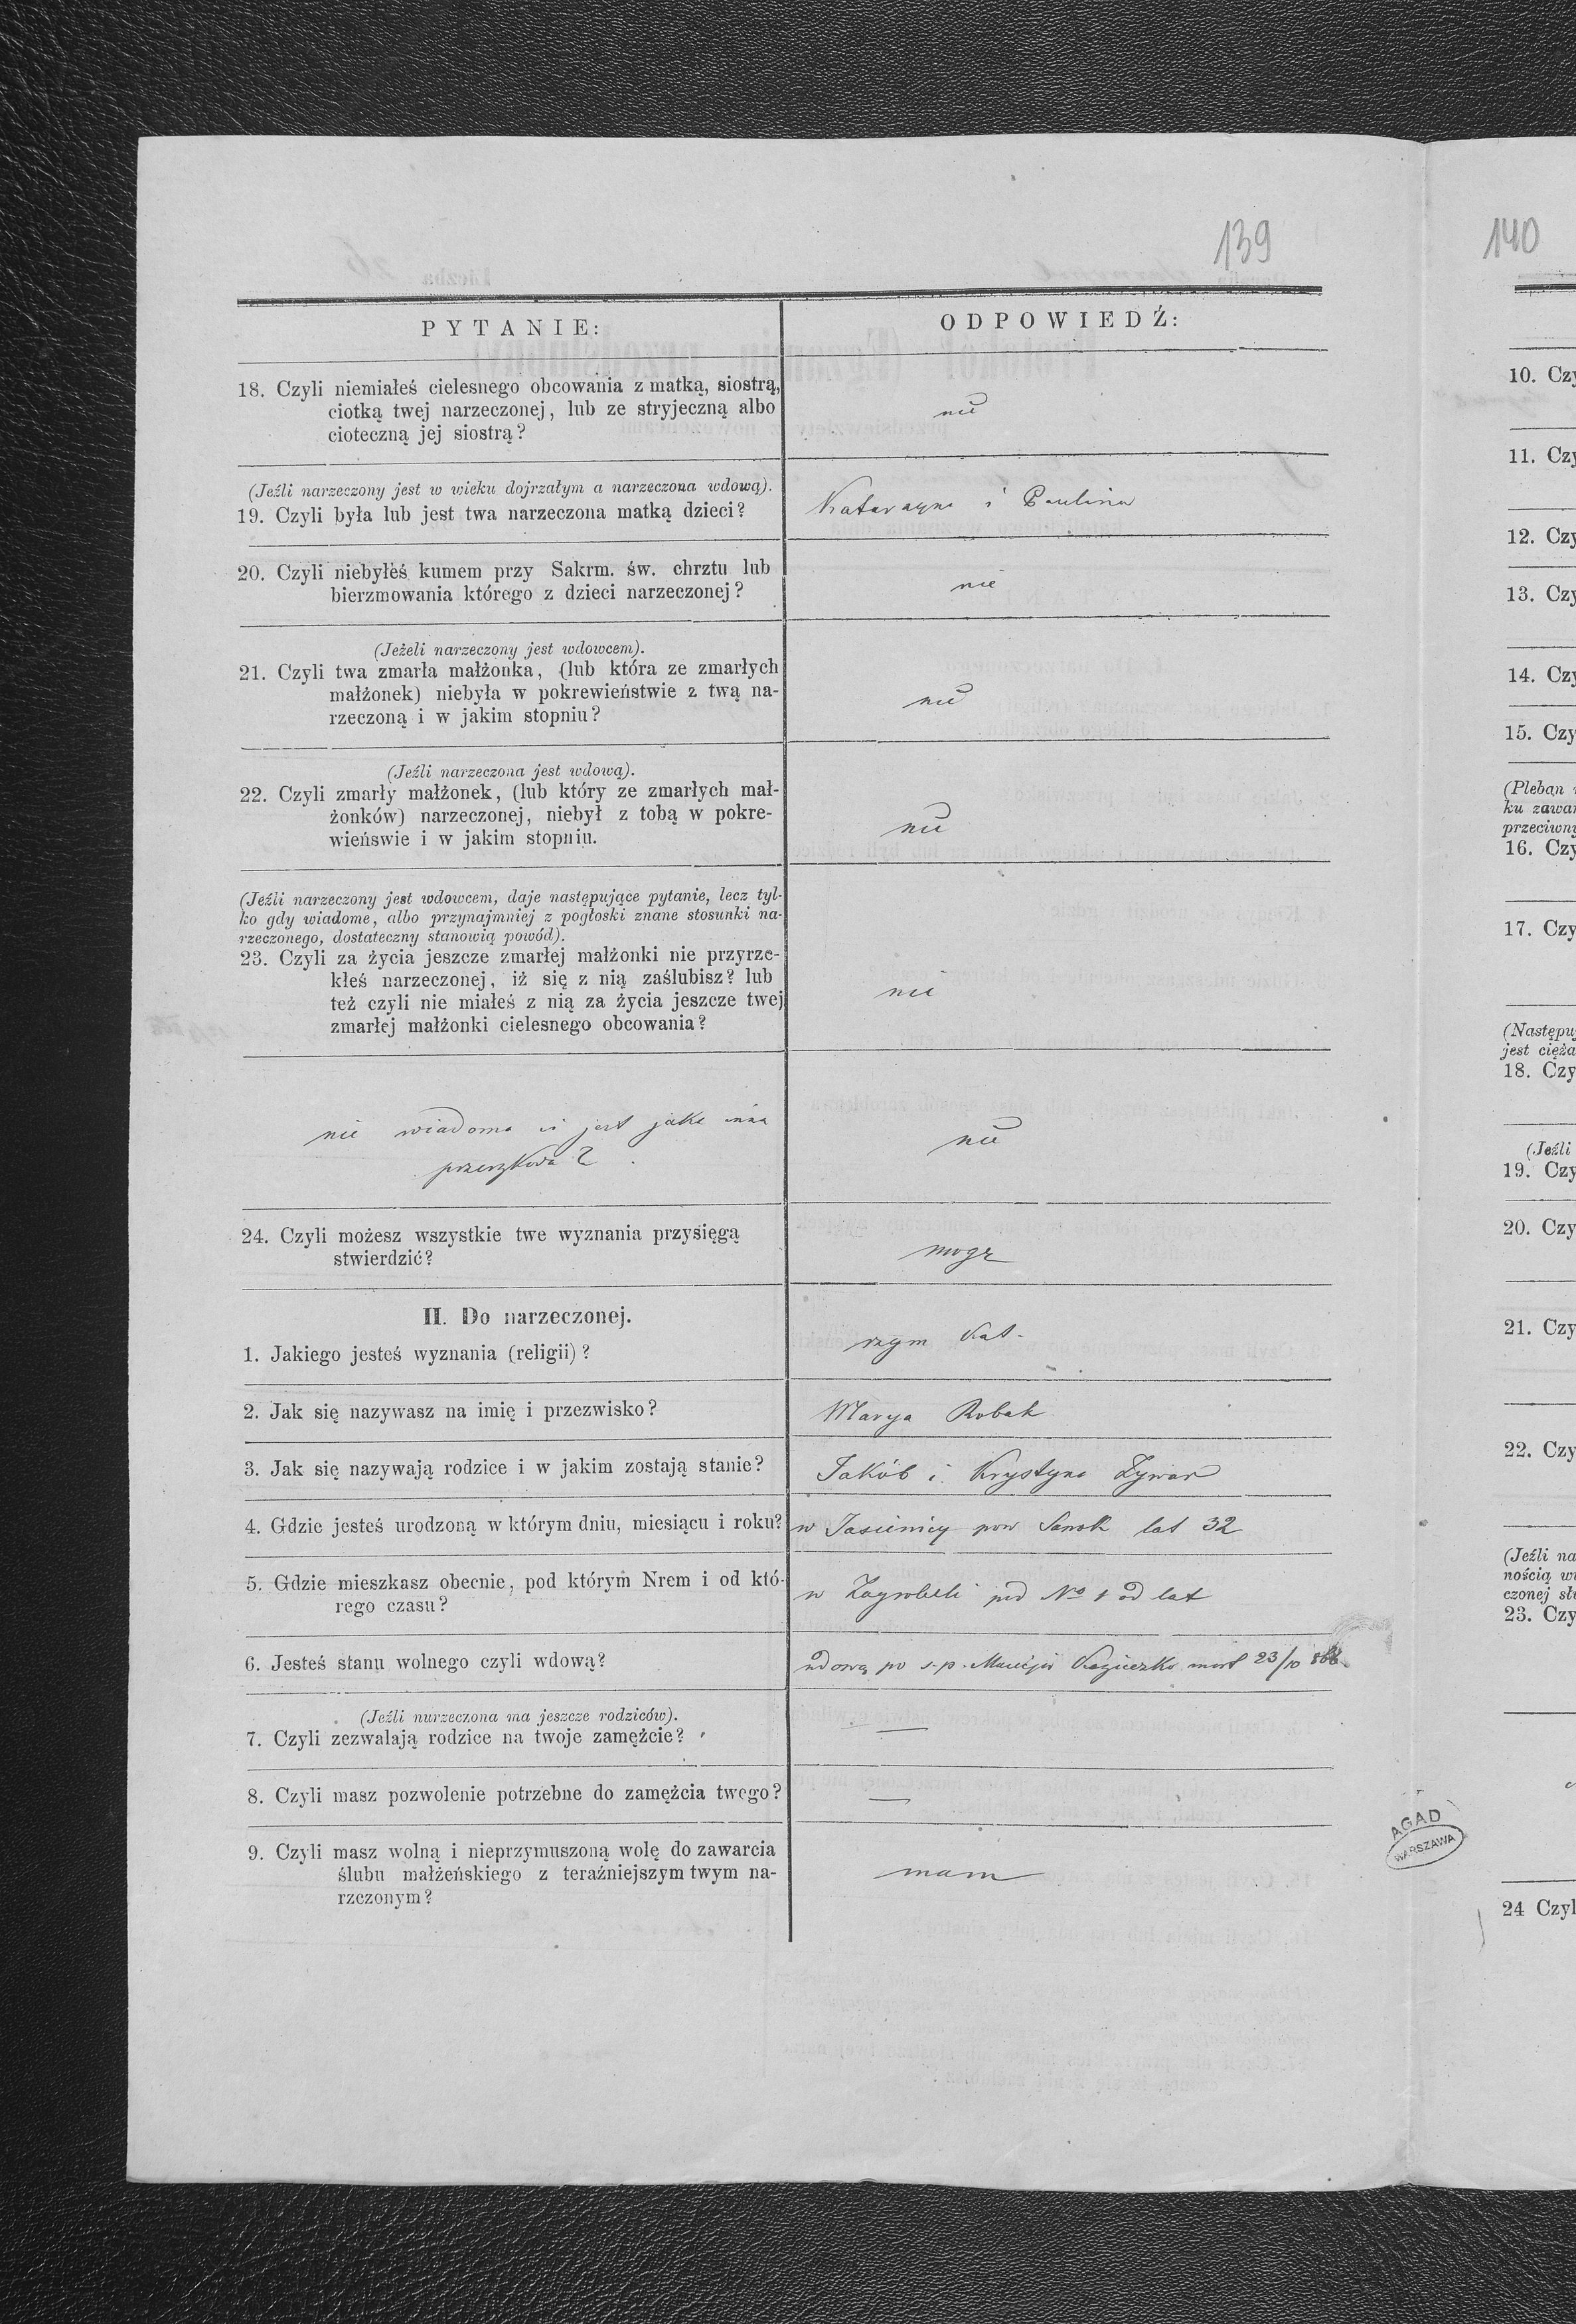 139
140
PYTANIE:
ODPOWIEDŹ:
18. Czyli niemiałeś cielesnego obcowania z matką, siostrą,
ciotką twej narzeczonej, lub ze stryjeczną albo
cioteczną jej siostrą?
nie
(Jeźli narzeczony jest w wieku dojrzałym a narzeczona wdową).
19. Czyli była lub jest twa narzeczona matką dzieci?
Katarzyna i Paulina
20. Czyli niebyłeś kumem przy Sakrm. św. chrztu lub
bierzmowania którego z dzieci narzeczonej?
nie
(Jeżeli narzeczony jest wdowcem).
21. Czyli twa zmarła małżonka, (lub która ze zmarłych
małżonek) niebyła w pokrewieństwie z twą na-
rzeczoną i w jakim stopniu?
nie
(Jeźli narzeczona jest wdową).
22. Czyli zmarły małżonek, (lub który ze zmarłych mał-
żonków) narzeczonej, niebył z tobą w pokre-
wieńswie i w jakim stopniu.
nie
(Jeźli narzeczony jest wdowcem, daje następujące pytanie, lecz tyl-
ko gdy wiadome, albo przynajmniej z pogłoski znane stosunki na-
rzeczonego, dostateczny stanowią powód).
23. Czyli za życia jeszcze zmarłej małżonki nie przyrze-
kłeś narzeczonej, iż się z nią zaślubisz? lub
też czyli nie miałeś z nią za życia jeszcze twej
zmarłej małżonki cielesnego obcowania?
nie
nie wiadomo ci jest jaka inna
przeszkoda?
nie
24. Czyli możesz wszystkie twe wyznania przysięgą
stwierdzić?
mogę
II. Do narzeczonej.
1. Jakiego jesteś wyznania (religii)?
rzym kat.
2. Jak się nazywasz na imię i przezwisko?
Marya Robak
3. Jak się nazywają rodzice i w jakim zostają stanie?
Jakób i Krystyna Żywar
4. Gdzie jesteś urodzoną w którym dniu, miesiącu i roku?
w Jasienicy pow Sanok lat 32
5. Gdzie mieszkasz obecnie, pod którym Nrem i od któ-
rego czasu?
w Zagrobeli pod No 1 od lat
6. Jesteś stanu wolnego czyli wdową?
wdową po ś.p. mort 23/10
(Jeźli nurzeczona ma jeszcze rodziców).
7. Czyli zezwalają rodzice na twoje zamężcie?
—
8. Czyli masz pozwolenie potrzebne do zamężcia twego?
—
9. Czyli masz wolną i nieprzymuszoną wolę do zawarcia
ślubu małżeńskiego z teraźniejszym twym na-
rzczonym?
mam
AGAD
WARSZAWA
10. Czy
11. Czy
12. Czy
13. Czy
14. Czy
15. Czy
(Pleban
ku zawar
przeciwny
16. Czy
17. Czy
(Następuj
jest cięża
18. Czy
(Jeźli
19. Czy
20. Czy
21. Czy
22. Czy
(Jeźli na
nością wi
czonej sł
23. Czy
24 Czyl